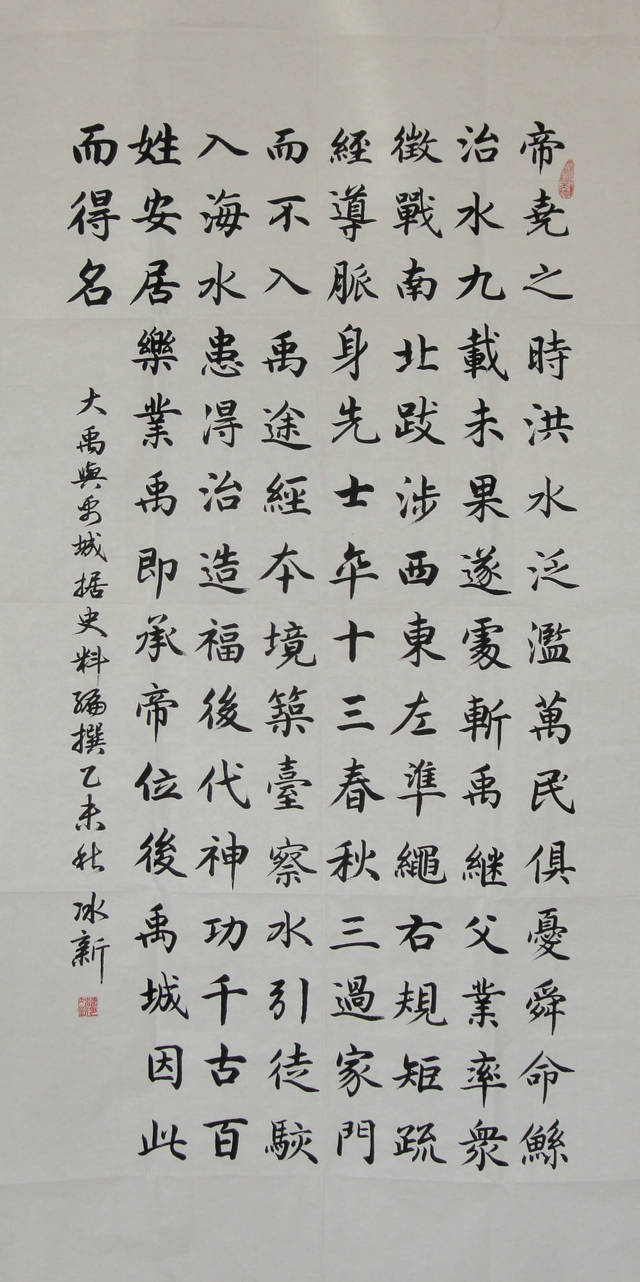 帝堯之時洪水泛濫萬民俱憂舜命鯀
治水九載未果遂處斬禹継父業率衆
徵戰南北跋涉西東左準繩右規矩疏
經導脈身先士卒十三春秋三過家門
而不入禹途經本境築臺察水引徒駭
入海水患得治造福後代神功千古百
姓安居樂業禹即承帝位後禹城因此
而得名
大禹與禹城据史料編撰乙未秋冰新